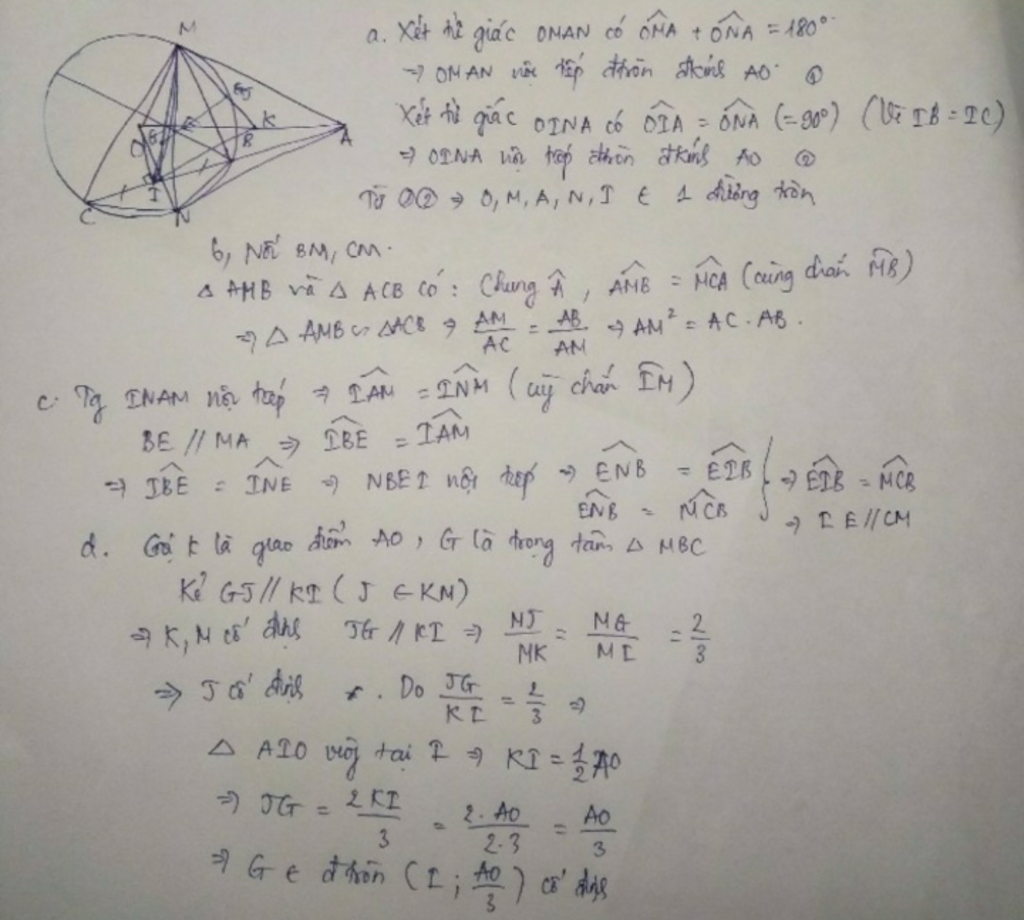 a. Xét tứ giác OMAN có \widehat{OMA} + \widehat{ONA} = 180°
→ OMAN nội tiếp đtròn đkính AO. ①
Xét tứ giác OINA có \widehat{OIA} = \widehat{ONA} (= 90°) (Vì IB = IC)
⇒ OINA nội tiếp đtròn đkính AO ②
Từ ①② ⇒ O, M, A, N, I ∈ 1 đường tròn
b, Nối BM, CM.
△ AMB và △ ACB có: Chung \widehat{A}, \widehat{AMB} = \widehat{MCA} (cùng chắn \widehat{MB})
⇒ △ AMB ∽ △ACB ⇒ \frac{AM}{AC} = \frac{AB}{AM} ⇒ AM² = AC. AB.
c. Tg INAM nội tiếp ⇒ \widehat{IAM} = \widehat{INM} (cùng chắn \widehat{IM})
BE // MA ⇒ \widehat{IBE} = \widehat{IAM}
⇒ \widehat{IBE} = \widehat{INE} ⇒ NBEI nội tiếp ⇒ \widehat{ENB} = \widehat{EIB} } ⇒ \widehat{EIB} = \widehat{MCB}
\widehat{ENB} = \widehat{MCB} ⇒ IE // CM
d. Gọi K là giao điểm AO, G là trọng tâm △ MBC
Kẻ GJ // KI (J ∈ KM)
⇒ K, M cố định JG // KI ⇒ \frac{MJ}{MK} = \frac{MG}{MI} = \frac{2}{3}
⇒ J cố định . Do \frac{JG}{KI} = \frac{2}{3} ⇒
△ AIO vuông tại I ⇒ KI = \frac{1}{2} AO
⇒ JG = \frac{2KI}{3} = \frac{2.AO}{2.3} = \frac{AO}{3}
⇒ G ∈ đtròn (I; \frac{AO}{3}) cố định
M
G
J
K
A
O
E
B
I
C
N